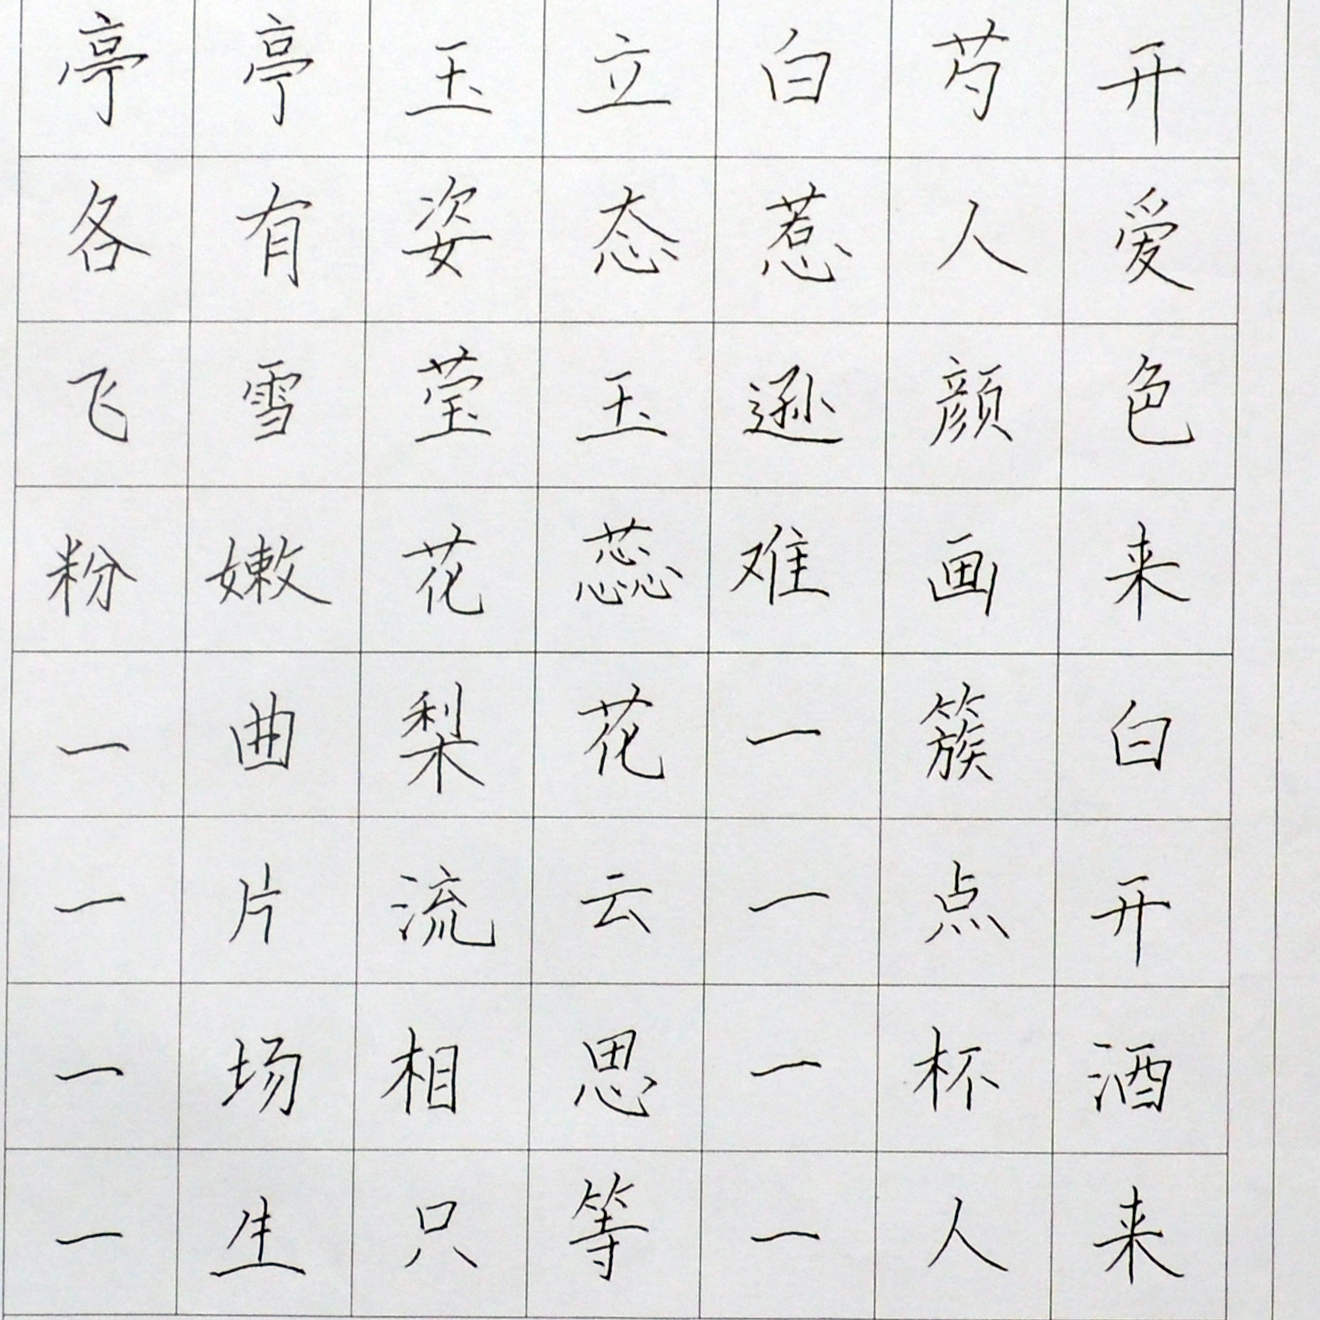 亭亭玉立白芍开
各有姿态惹人爱
飞雪莹玉逊颜色
粉嫩花蕊难画来
一曲梨花一簇白
一片流云一点开
一场相思一杯酒
一生只等一人来